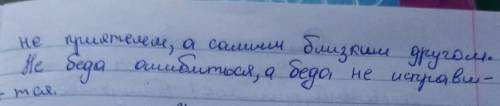 не приятелем, а самим близким другом.
Не беда ошибиться, а беда не исправи-
-тся.